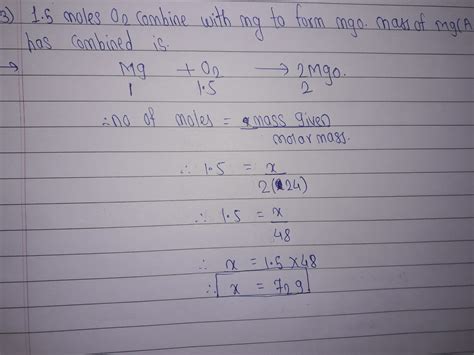 3) 1.5 moles O2 combine with mg to form mgo. mass of mg(A
has combined is.
→ Mg + O2 → 2Mgo.
1 1.5 2
∴no of moles = mass given
molar mass.
∴ 1.5 = x
2(24)
∴ 1.5 = x
48
∴ x = 1.5 x 48
∴ x = 72g